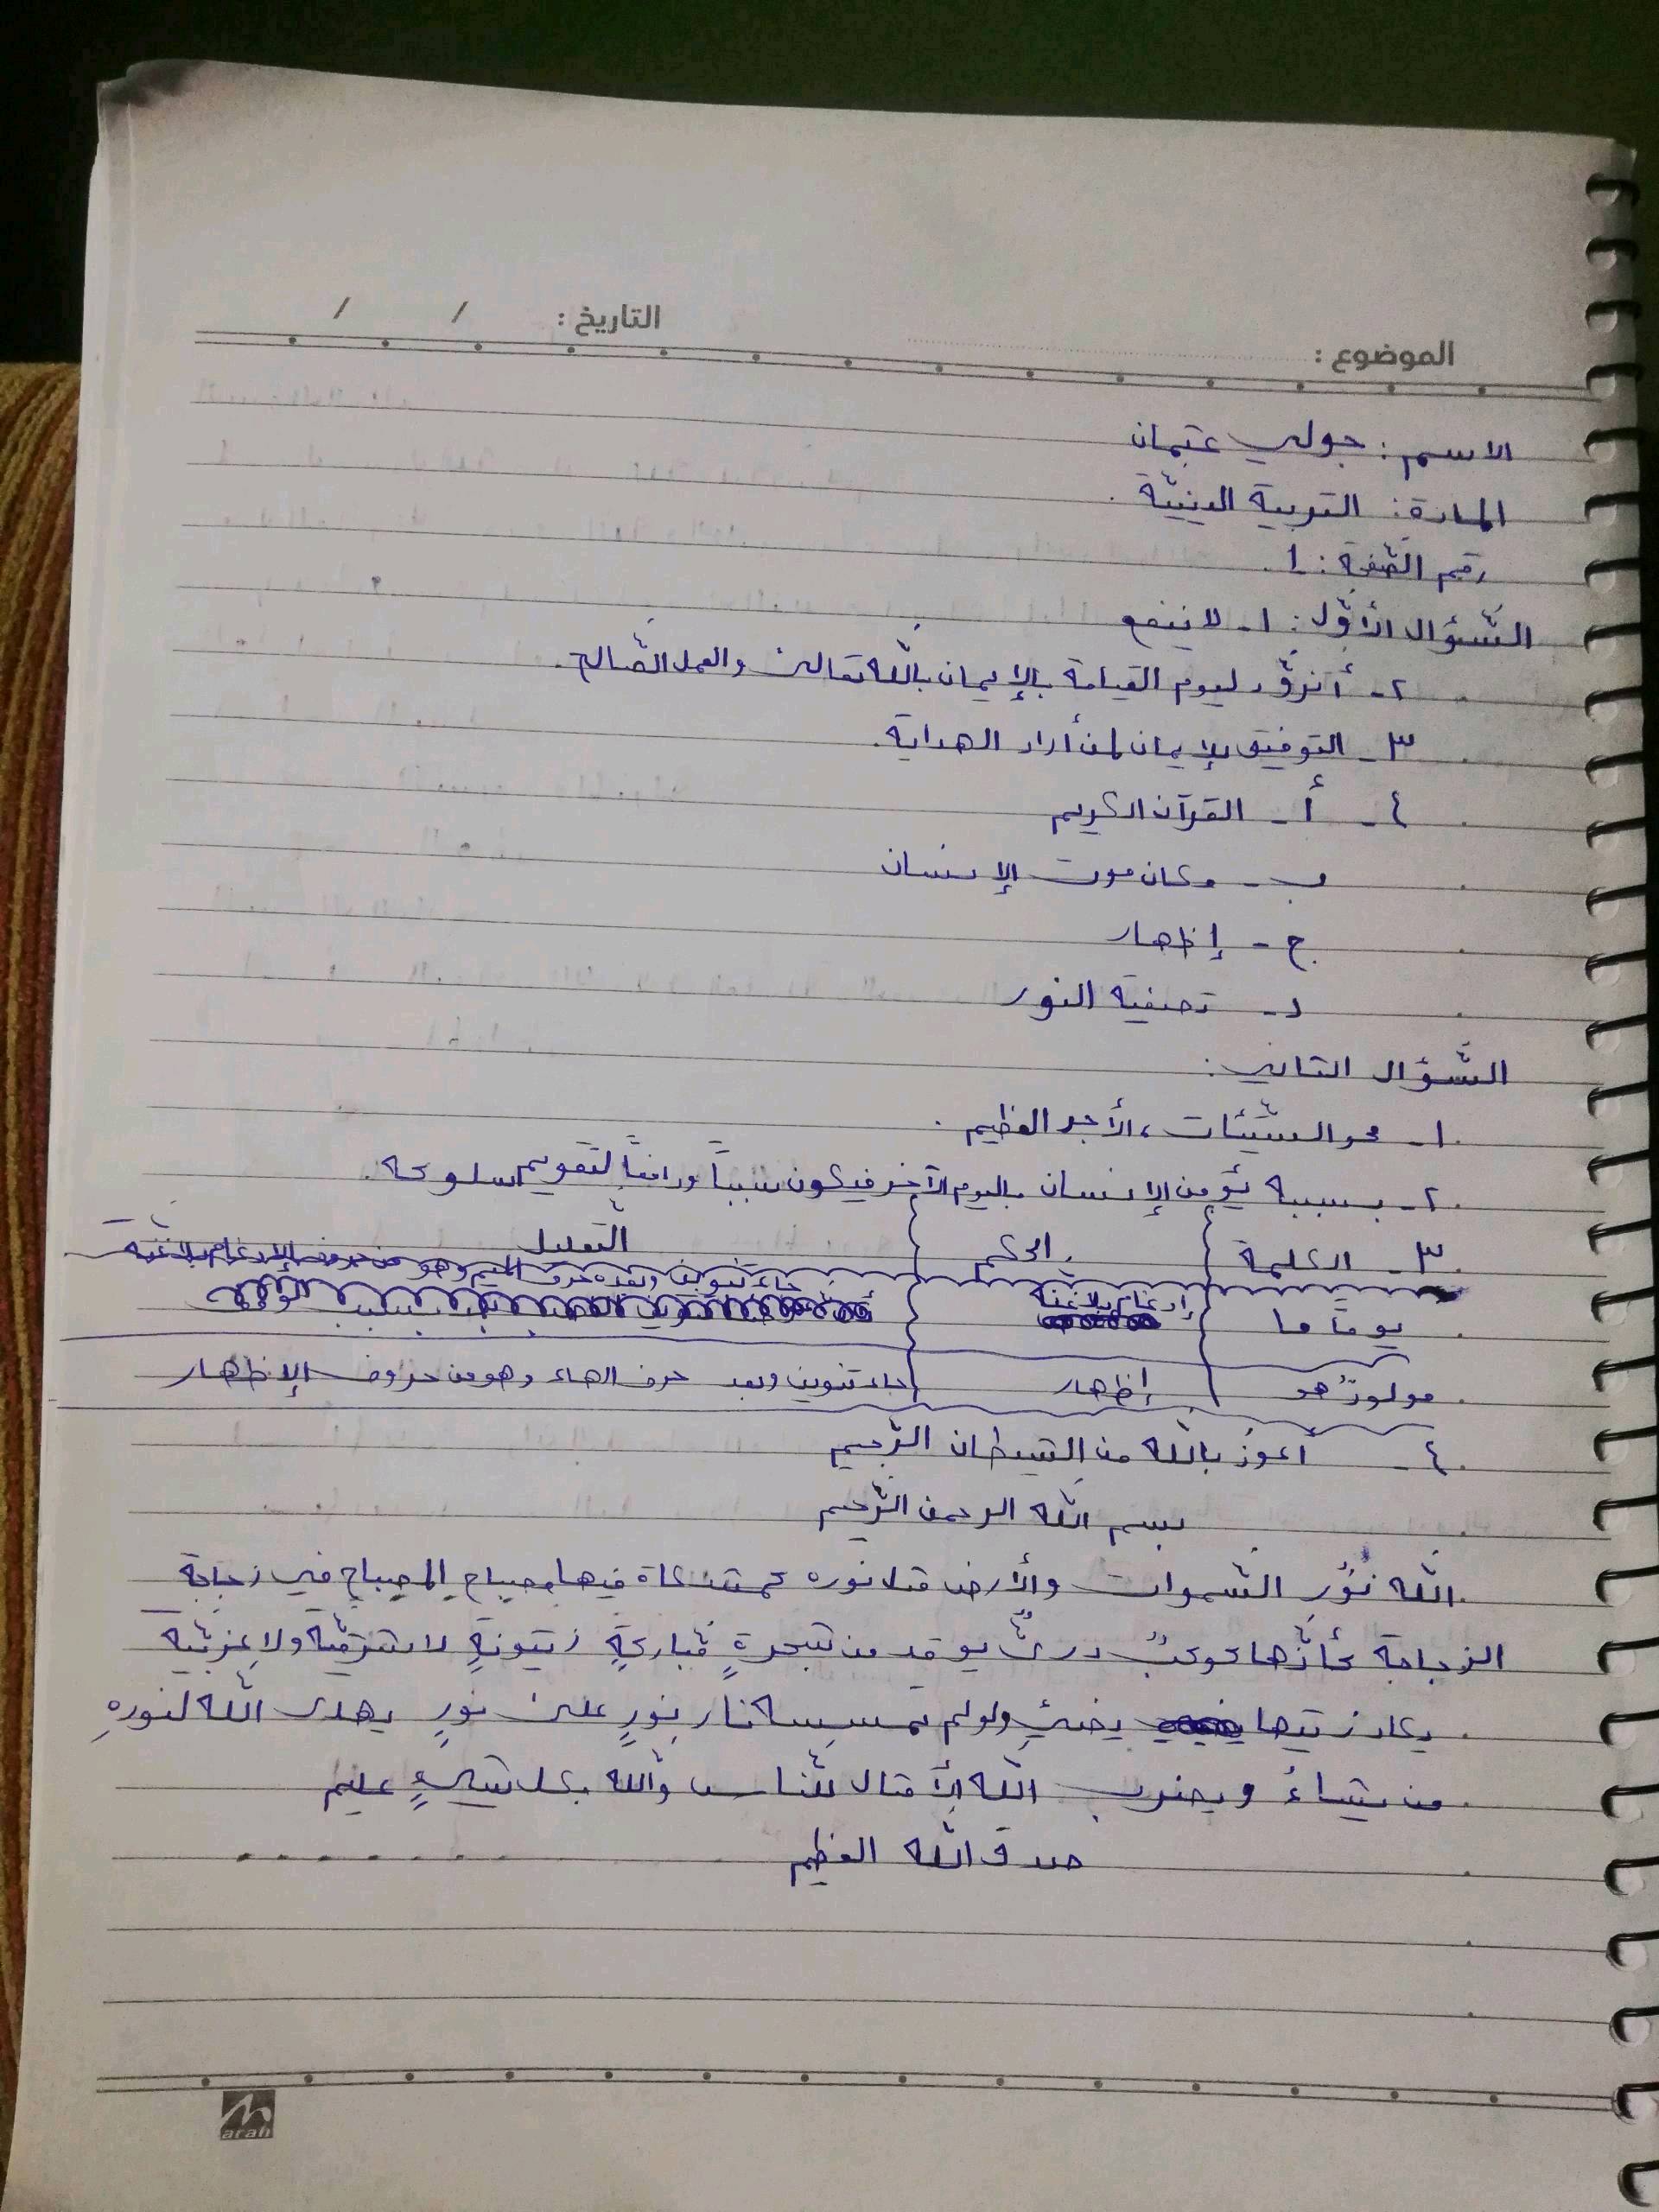 الموضوع : التاريخ : / /
الاسم : جولي عثمان
المادة : التربية الدينيّة .
رقم الصّفحة : 1 .
السّؤال الأوّل : ١ - لا ينفع
٢ - أتزوّد ليوم القيامة بالإيمان باللّه تعالى والعمل الصّالح .
٣ - التوفيق بالإيمان لمن أراد الهداية .
٤ - أ - القرآن الكريم
ب - مكان موت الإنسان
ج - إظهار
د - تصفية النور
السّؤال الثاني :
١ - محو السّيّئات ، الأجر العظيم .
٢ - بسببه يؤمن الإنسان باليوم الآخر فيكون سبباً ورافعاً لتقويم سلوكه .
٣ - الكلمة الحكم التّعليل
يوماً ما إدغام بلاغنة جاء تنوين وبعده حرف الميم وهو من حروف الإدغام بلاغنّة
مولودٌ هو إظهار جاء تنوين وبعد حرف الهاء وهو من حروف الإظهار
٤ - أعوذ باللّه من الشيطان الرّجيم
بسم اللّه الرحمن الرّحيم
اللّه نُوُر السّموات والأرض مثل نوره كمشكاة فيها مصباح المصباح في زجاجة
الزجاجة كأنّها كوكبٌ دريٌّ يوقد من شجرةٍ مّباركةٍ زيتونةٍ لا شرقيّة ولا غربيّة
يكاد زيتها يضيئ ولو لم تمسسه نار نورٍ على نورٍ يهدى اللّه لنورهِ
من يشاءُ ويضرب اللّه الأمثال للنّاس واللّه بكل شيءٍ عليم
صدق اللّه العظيم
arah